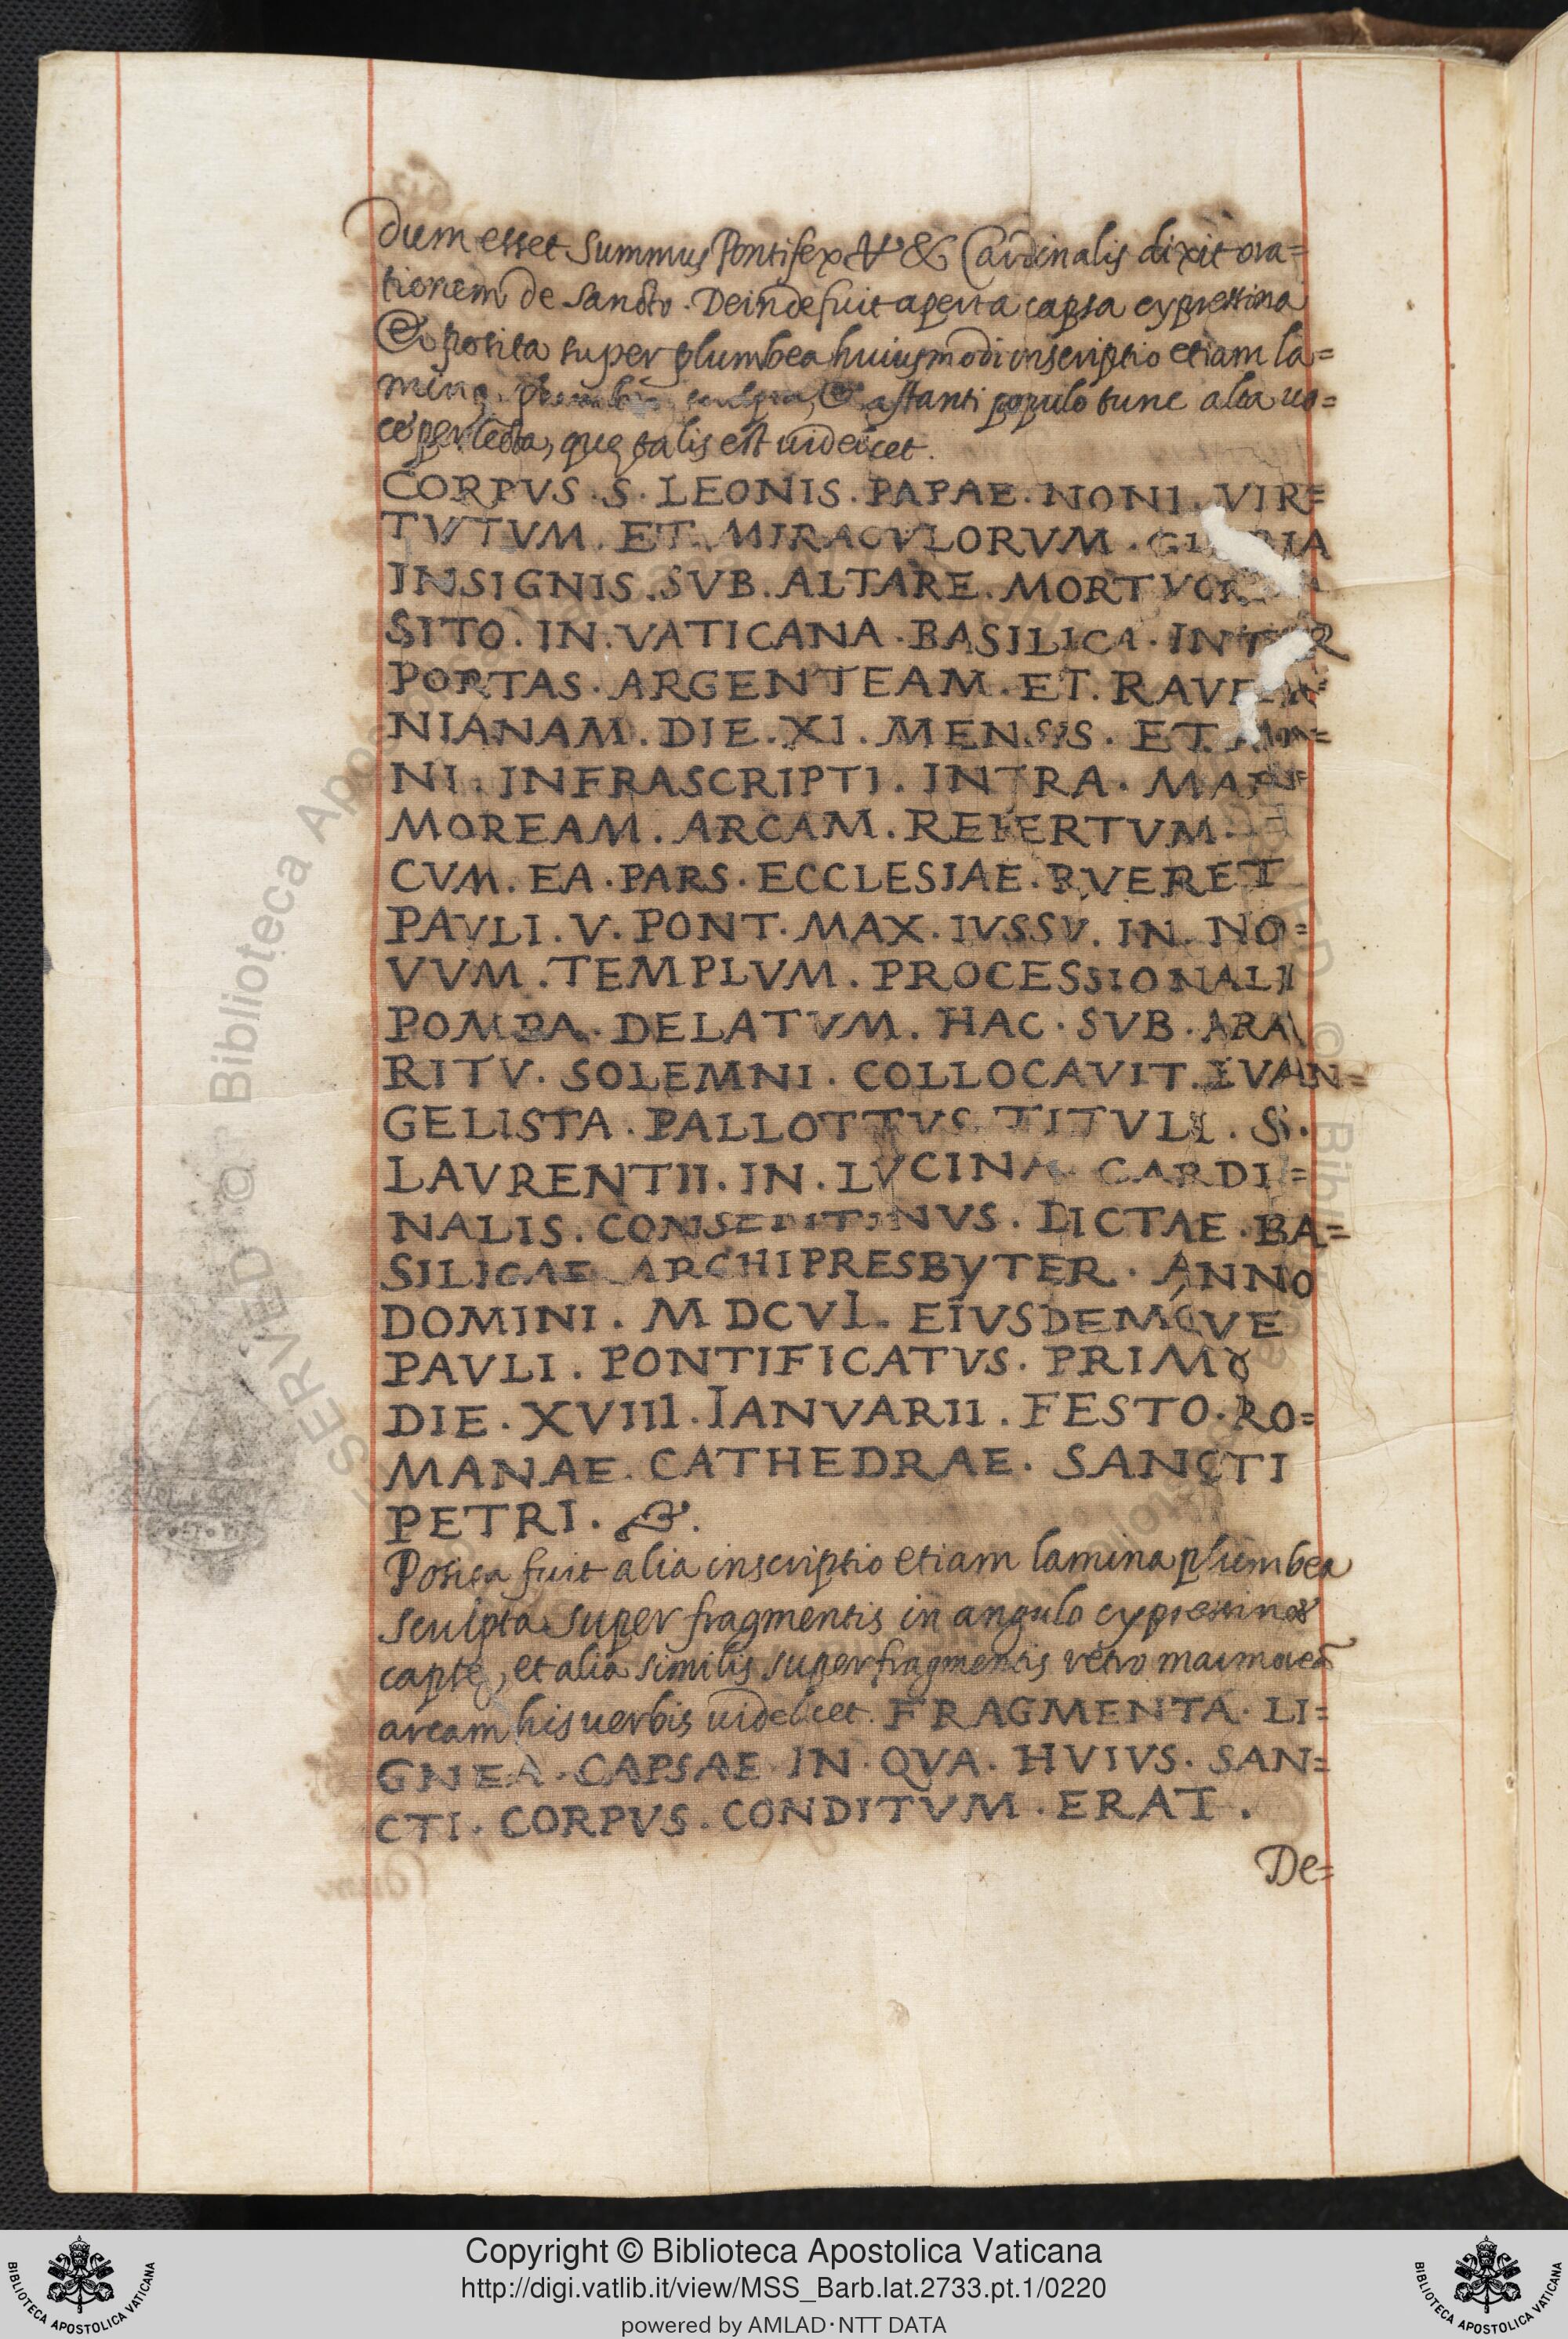 dum esset Summus Pontifex & Cardinalis dixit ora=
tionem de Sancto. Deinde fuit aperta capsa cypressina
& posita super plumbea huiusmodi inscriptio etiam la=
mina & astanti populo tunc alta uo=
ce perlecta, quę talis est uidelicet.
CORPVS. S. LEONIS. PAPAE. NONI. VIR=
TVTVM. ET. MIRACVLORVM.
INSIGNIS. SVB. ALTARE.
SITO. IN. VATICANA. BASILICA. INTER
PORTAS. ARGENTEAM. ET.
NIANAM. DIE. XI. MENSIS. ET.
NI. INFRASCRIPTI. INTRA. MAR=
MOREAM. ARCAM. REPERTVM.
CVM. EA. PARS. ECCLESIAE. RVERET
PAVLI. V. PONT. MAX. IVSSV. IN. NO=
VVM. TEMPLVM. PROCESSIONALI
POMPA. DELATVM. HAC. SVB. ARA
RITV. SOLEMNI. COLLOCAVIT. EVAN=
GELISTA. PALLOTTVS. TITVLI. S.
LAVRENTII. IN. LVCINA. CARDI=
NALIS. DICTAE. BA=
SILICAE. ARCHIPRESBYTER. ANNO
DOMINI. MDCVI. EIVSDEMQVE
PAVLI. PONTIFICATVS. PRIMO
DIE. XVIII. IANVARII. FESTO. RO=
MANAE. CATHEDRAE. SANCTI
PETRI.
Posita fuit alia inscriptio etiam lamina plumbea
sculpta super fragmentis in angulo cypressinæ
capsę, et alia similis super fragmentis retro marmoreā
arcam his uerbis uidelicet. FRAGMENTA. LI=
GNEA. CAPSAE. IN. QVA. HVIVS. SAN=
CTI. CORPVS. CONDITVM. ERAT.
De=
Copyright © Biblioteca Apostolica Vaticana
http://digi.vatlib.it/view/MSS_Barb.lat.2733.pt.1/0220
powered by AMLAD·NTT DATA
BIBLIOTECA APOSTOLICA VATICANA
BIBLIOTECA APOSTOLICA VATICANA